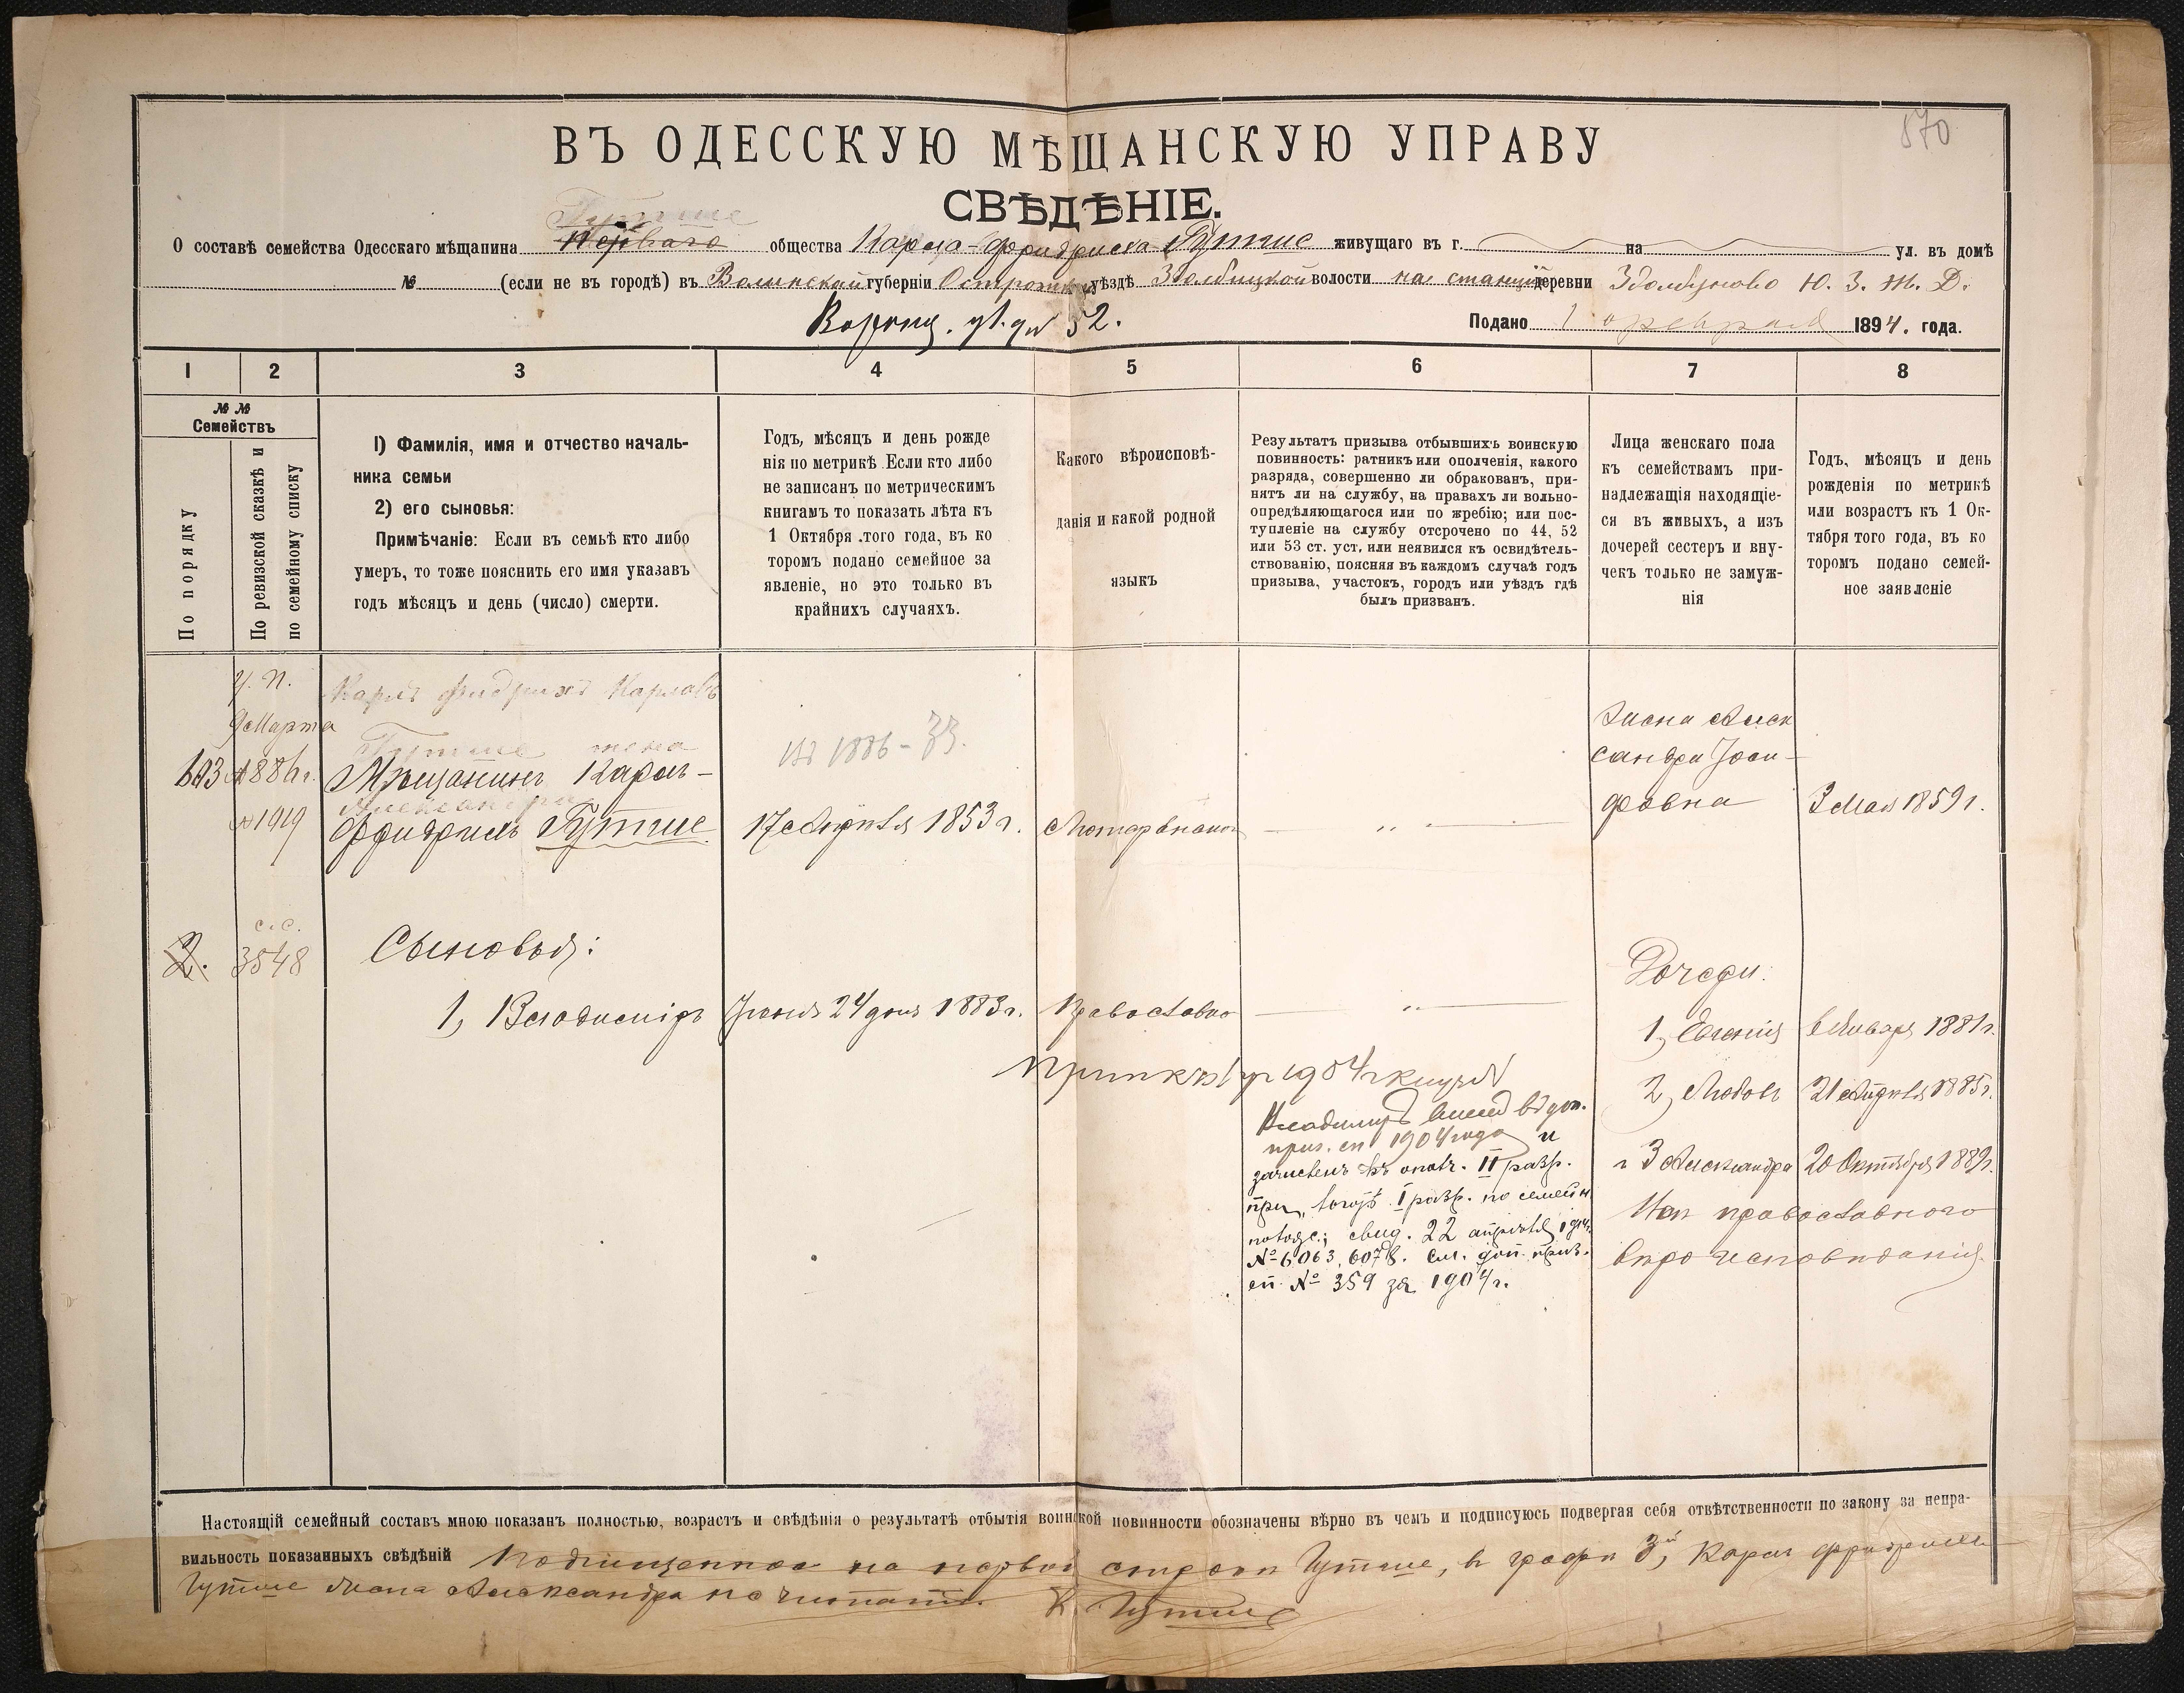 570
ВЪ ОДЕССКУЮ МѢЩАНСКУЮ УПРАВУ
СВѢДѢНІЕ.
Гутше
О составѣ семейства Одесскаго мѣщанина общества Карла-Фридриха Гутше живущаго въ г. на ул. въ домѣ
№ (если не въ городѣ) въ Волынской губерніи Острожск уѣздѣ Здолбицкой волости на станціи деревни Здолбуново Ю. З. Ж. Д.
52.
Подано 1 февраля 1894. года.
1 2 3 4 5 6 7 8
№ №
Семействъ
По порядку
По ревизской сказкѣ и
по семейному списку
1) Фамилія, имя и отчество началь-
ника семьи
2) его сыновья:
Примѣчаніе: Если въ семьѣ кто либо
умеръ, то тоже пояснить его имя указавъ
годъ мѣсяцъ и день (число) смерти.
Годъ, мѣсяцъ и день рожде
нія по метрикѣ .Если кто либо
не записанъ по метрическимъ
книгамъ то показать лѣта къ
1 Октября .того года, въ ко
торомъ подано семейное за
явленіе, но это только въ
крайнихъ случаяхъ.
Какого вѣроисповѣ-
данія и какой родной
языкъ
Результатъ призыва отбывшихъ воинскую
повинность: ратникъ или ополченія, какого
разряда, совершенно ли обракованъ, при-
нятъ ли на службу, на правахъ ли вольно-
опредѣляющагося или по жребію; или пос-
тупленіе на службу отсрочено по 44, 52
или 53 ст. уст. или неявился къ освидѣтель-
ствованію, поясняя въ каждомъ случаѣ годъ
призыва, участокъ, городъ или уѣздъ гдѣ
былъ призванъ.
Лица женскаго пола
къ семействамъ при-
надлежащія находящіе-
ся въ живыхъ, а изъ
дочерей сестеръ и вну-
чекъ только не замуж-
нія
Годъ, мѣсяцъ и день
рожденія по метрикѣ
или возрастъ къ 1 Ок-
тября того года, въ ко
торомъ подано семей-
ное заявленіе
Карлъ Фридрихъ Карловъ
9 Марта
Гутше жена
1886 г.
Мѣщанинъ Карлъ-
Александра
№ 1919
Фридрихъ Гутше
17 Апрѣля 1853 г.
въ 1886 - 33.
Жена Алек
сандра Іоси-
фовна
3 Мая 1859 г.
2.
с.с.
3548
Сыновья:
1, Владиміръ
Іюня 24 дня 1883 г.
Православно
1904 г
Владиміръ внесенъ въ доп.
приз. сп 1904 года и
зачисленъ въ опол. II разр.
I разр. по семейн
свид. 22 апрѣля
№ 6063, 6078. См. доп. приз.
сп. № 359 за 1904 г.
Дочери:
1, Евгенія
6 Января 1881 г.
2, Любовь
21 Апрѣля 1885 г.
3 Александра
20 Октября 1889.
православного
вероисповѣданія
Настоящій семейный составъ мною показанъ полностью, возрастъ и свѣдѣнія о результатѣ отбытія воинской повинности обозначены вѣрно въ чемъ и подписуюсь подвергая себя отвѣтственности по закону за непра-
вильность показанныхъ свѣдѣній Подчищенное на первой строкѣ Гутше, въ графѣ 3й, Карлъ Фридрихъ
Гутше жена Александра не считать. К. Гутше